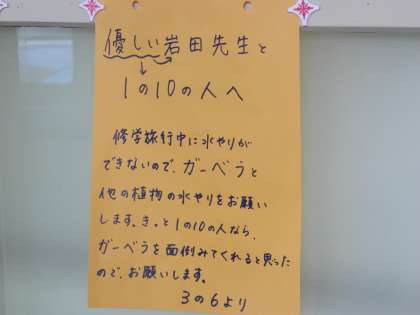 優しい岩田先生と
1の10の人へ
修学旅行中に水やりが
できないので、ガーベラと
他の植物の水やりをお願い
します。きっと1の10の人なら、
ガーベラを面倒みてくれると思った
ので、お願いします。
3の6より